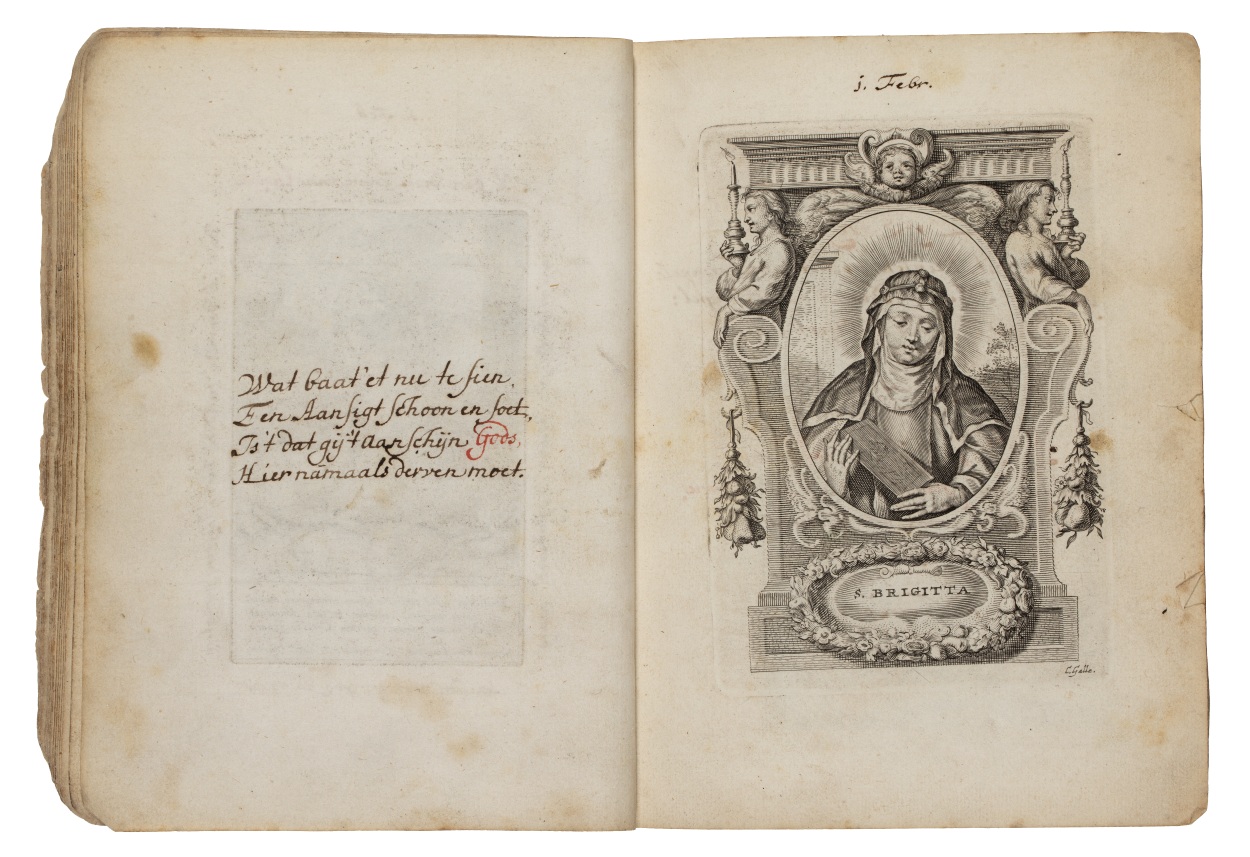 Wat baat'et nu te sien,
Een Aansigt schoon en soet,
Is't dat gij't aanschijn Gods,
Hier namaals derven moet.
j. Febr.
S. BRIGITTA
C. Galle.